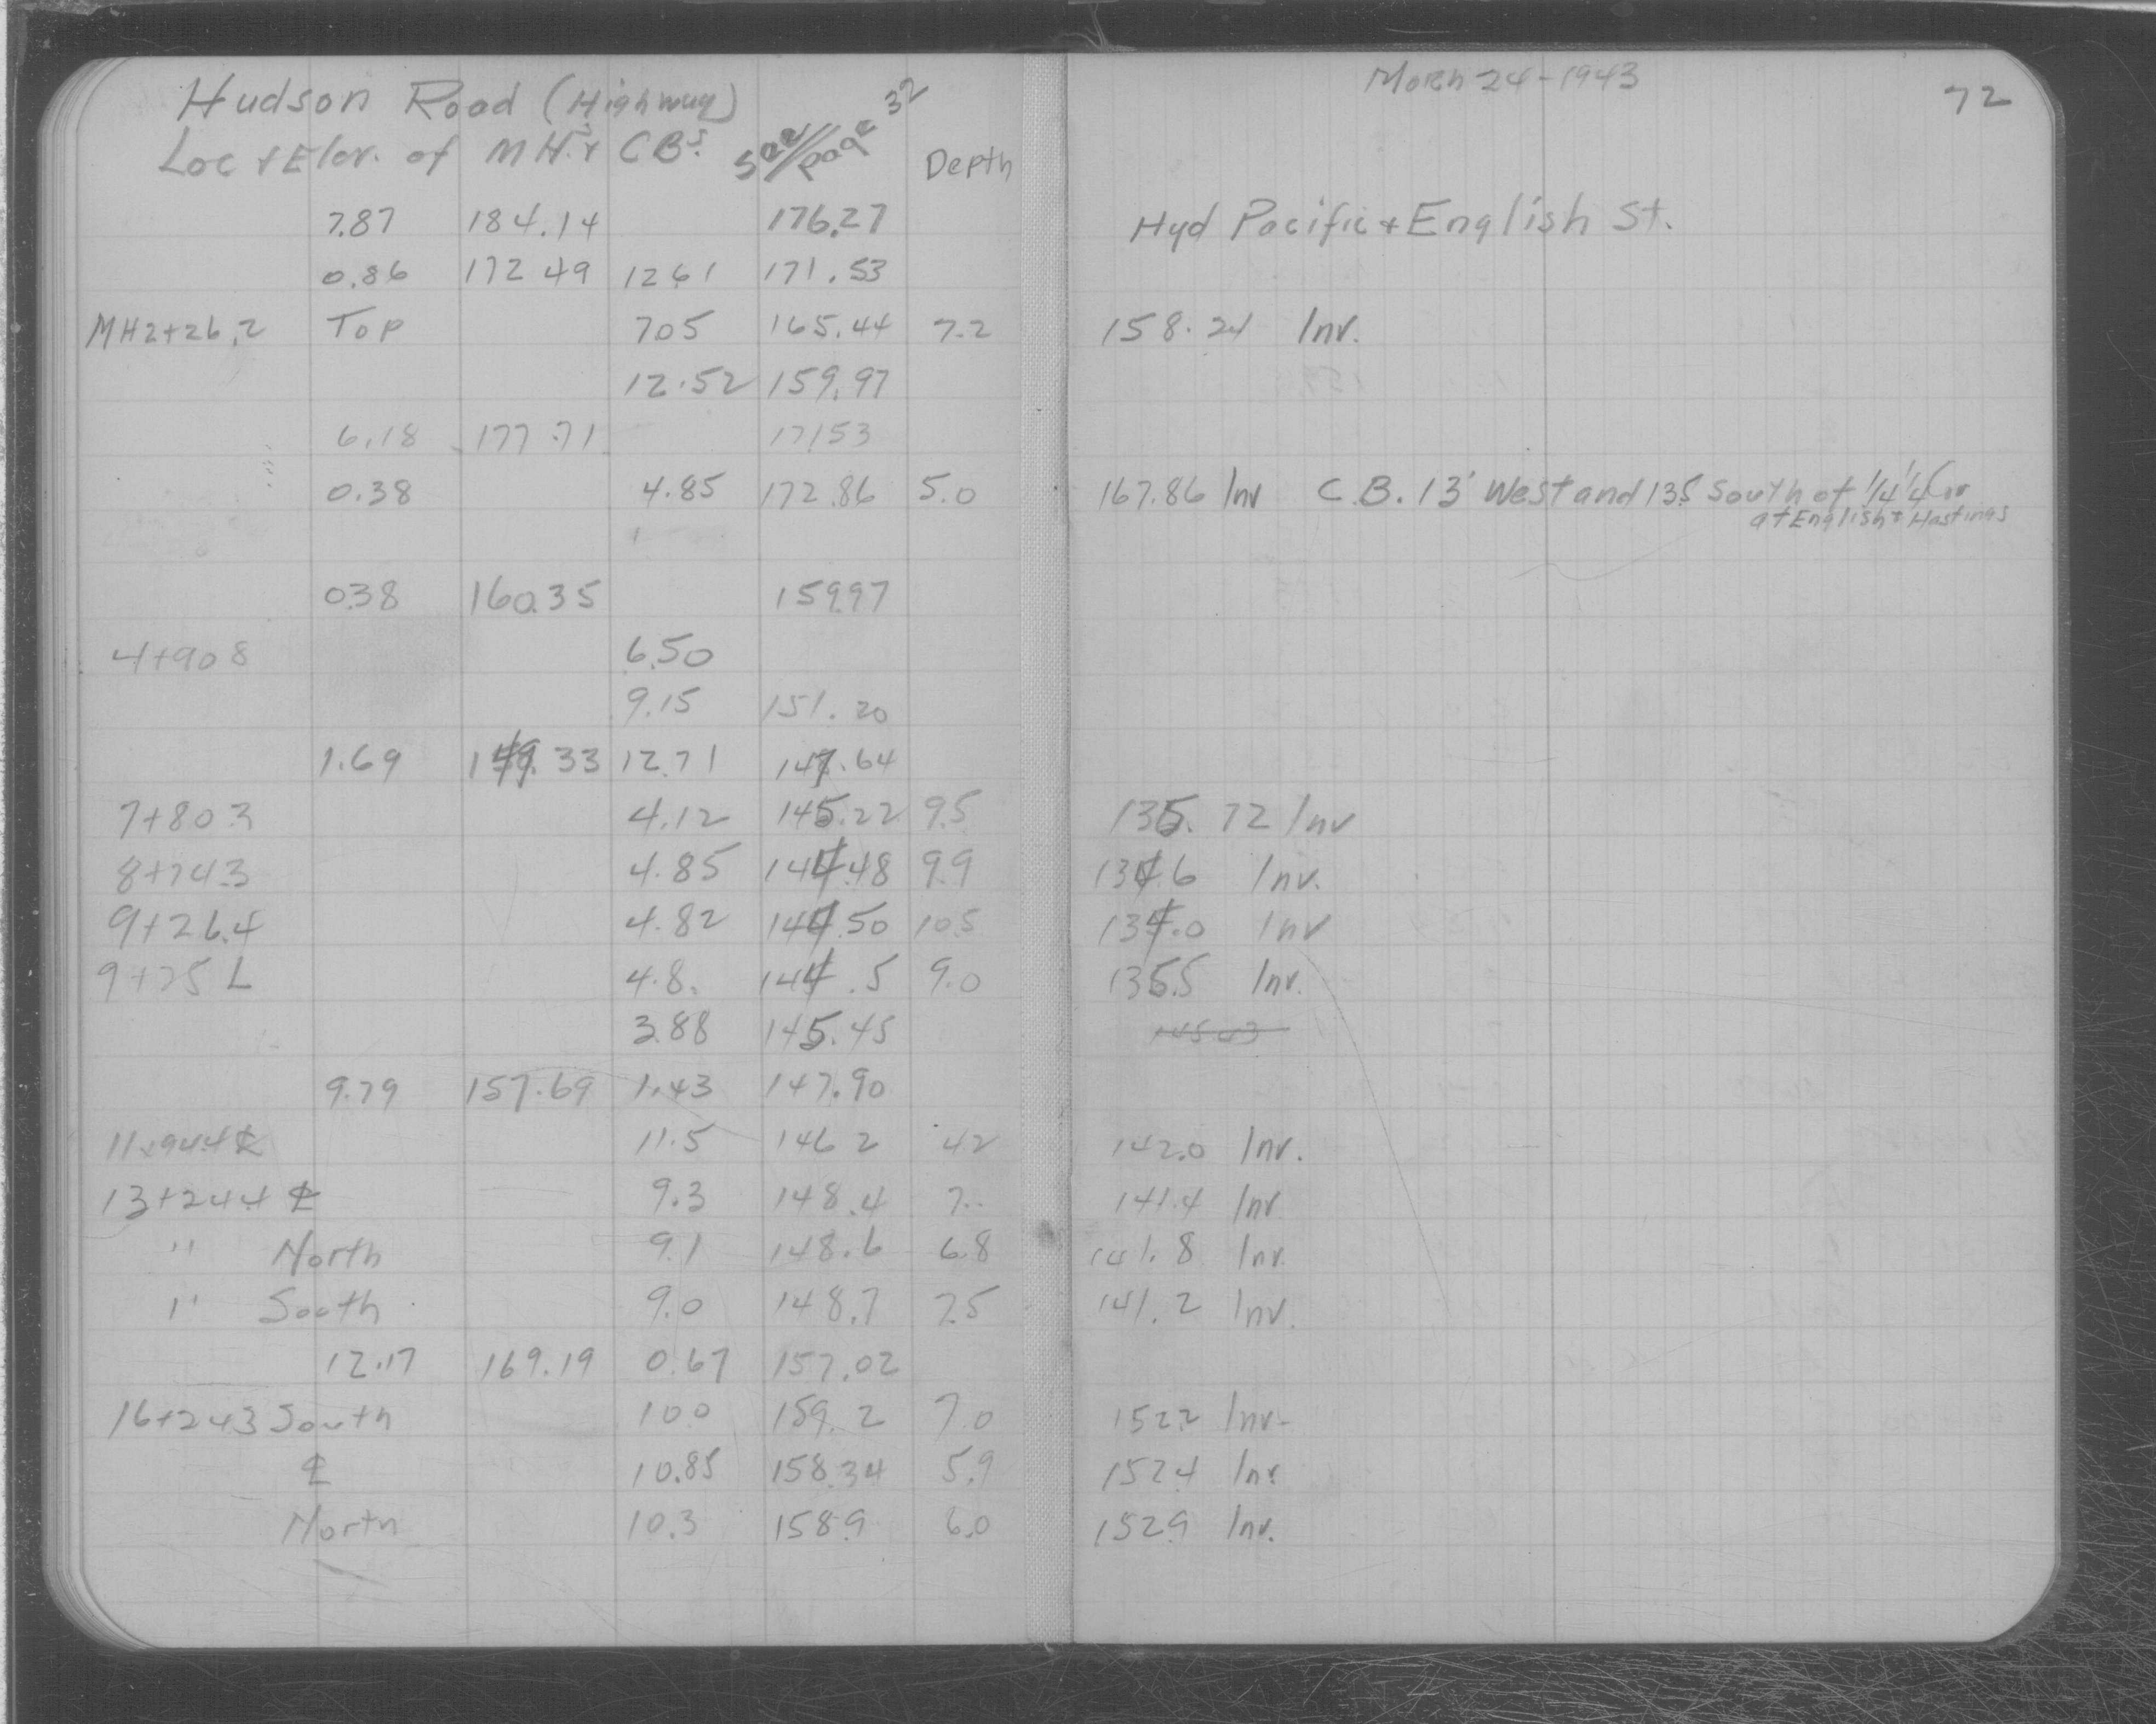 Hudson Road (Highway)
March 24-1943
72
Loc + Elev. of MH.s + CBs. See page 32 Depth
7.87 184.14 176.27 Hyd Pacific + English St.
0.86 172 49 12 61 171.53
MH 2+26.2 Top 705 165.44 7.2 158.24 Inv.
12.52 159.97
6.18 177.71 17153
0.38 4.85 172.86 5.0 167.86 Inv C.B. 13' West and 135 South of 1/4 1/4 Cor
at English + Hastings
038 160.35 159.97
4+90 8 6.50
9.15 151.20
1.69 149.33 12.71 147.64
7+80 3 4.12 145.22 9.5 135.72 Inv
8+74.3 4.85 144.48 9.9 134.6 Inv.
9+26.4 4.82 144.50 10.5 134.0 Inv
9+75 L 4.8. 144.5 9.0 135.5 Inv.
3.88 145.45
9.79 157.69 1.43 147.90
11+94.4 ℄ 11.5 146 2 42 142.0 Inv.
13+24 4 ℄ 9.3 148.4 7.. 141.4 Inv
" North 9.1 148.6 6.8 141.8 Inv.
" South 9.0 148.7 7.5 141.2 Inv.
12.17 169.19 0.67 157.02
16+243 South 10 0 159.2 7.0 152.2 Inv.
℄ 10.85 158.34 5.9 152.4 Inv
North 10.3 158.9 6.0 152.9 Inv.